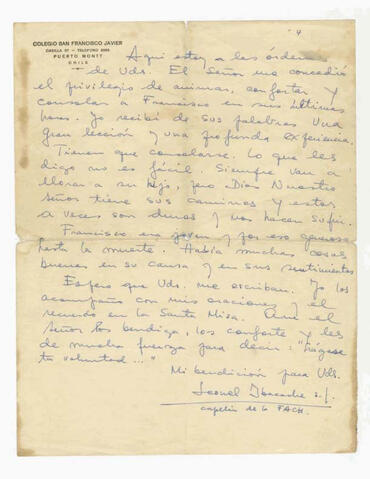 4
COLEGIO SAN FRANCISCO JAVIER
PUERTO MONTT
CHILE
Aquí estoy a las órdenes
de Uds. El Señor me concedió
el privilegio de animar, confortar y
consolar a Francisco en sus últimas
horas. Yo recibí de sus palabras una
gran lección y una profunda experiencia.
Tienen que consolarse. Lo que les
digo no es fácil. Siempre van a
llorar a su hijo, pero Dios Nuestro
Señor tiene sus caminos y estos
a veces son duros y nos hacen sufrir.
Francisco era joven y por eso generoso
hasta la muerte. Había muchas cosas
buenas en su causa y en sus sentimientos
Espero que Uds. me escriban. Yo los
acompaño con mis oraciones y el
recuerdo en la Santa Misa. Que el
Señor los bendiga, los conforte y les
dé mucha fuerza para decir: "Hágase
tu voluntad..."
Mi bendición para Uds.
s.j.
capellán de la FACH.